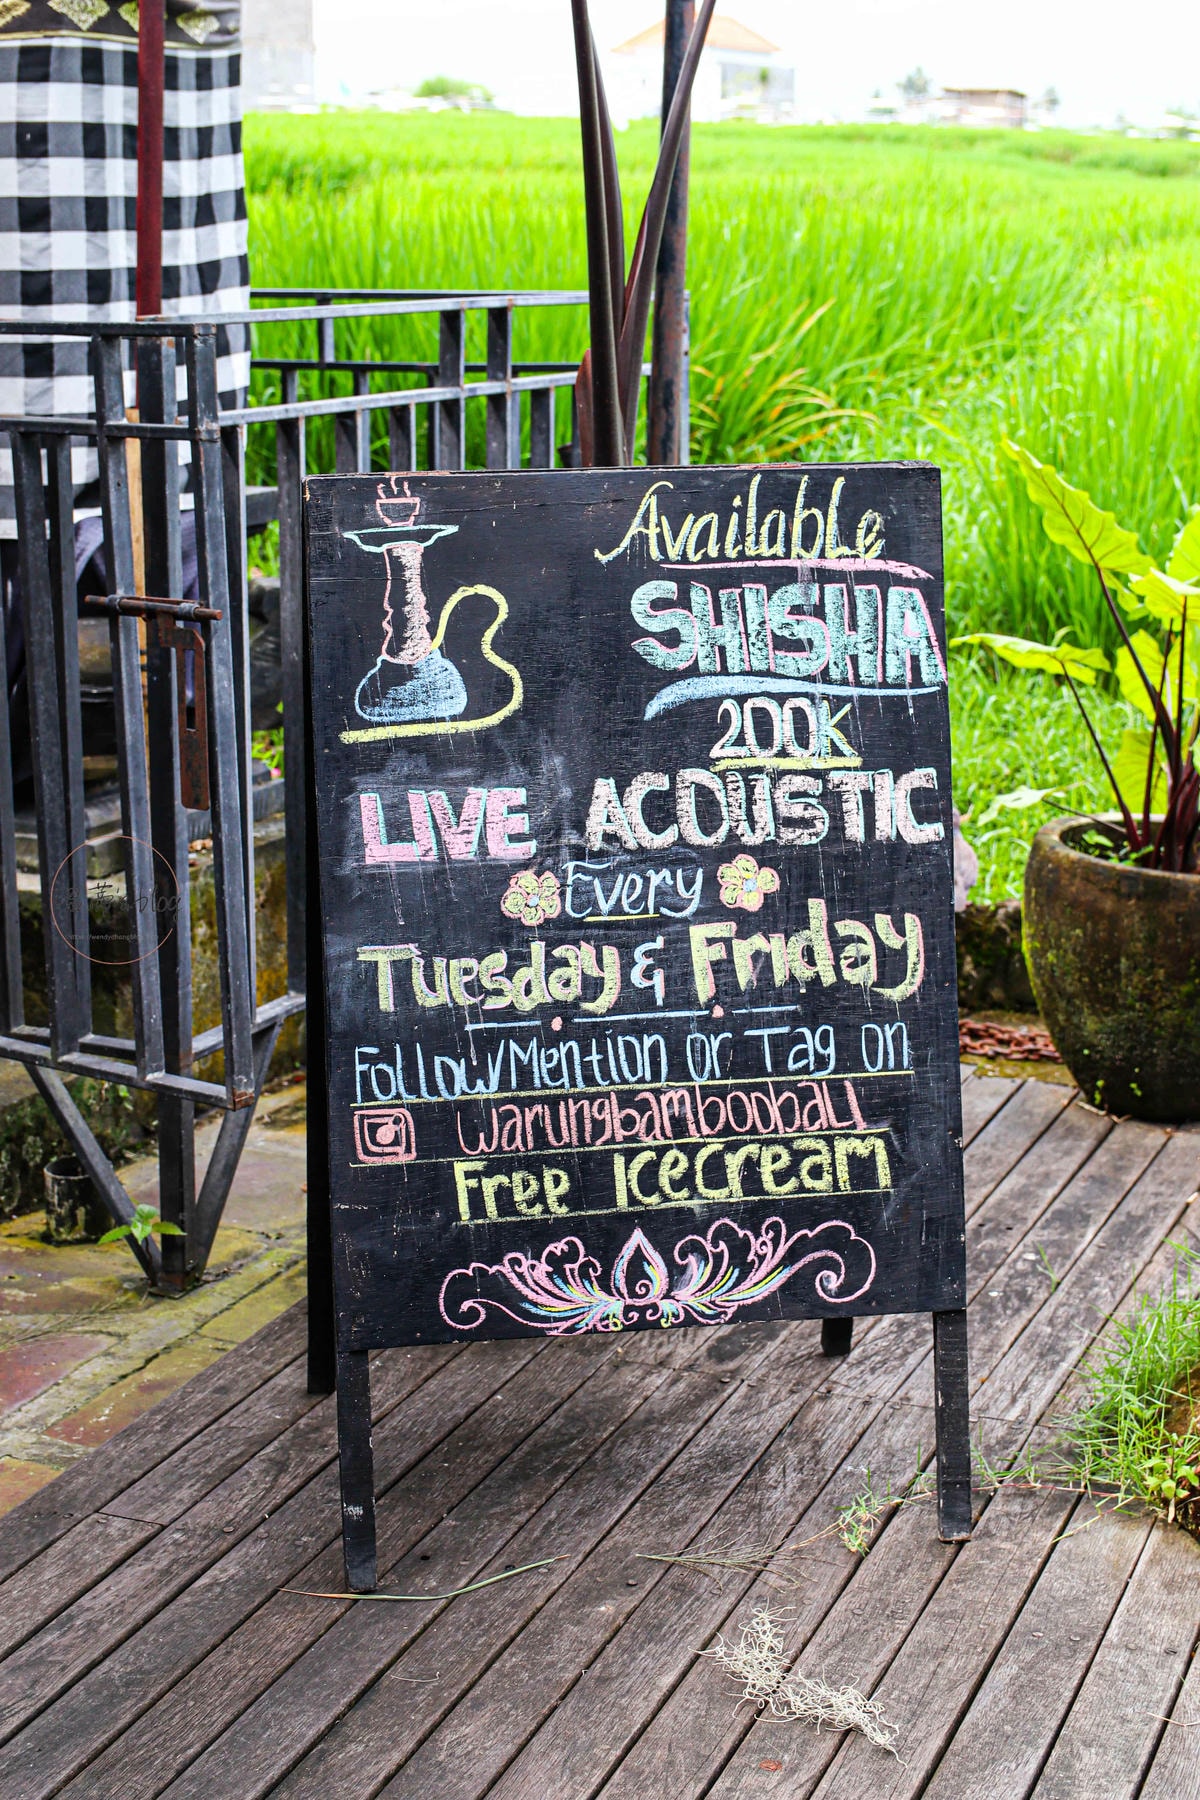 Available
SHISHA
200K
LIVE ACOUSTIC
Every
Tuesday & Friday
Follow/Mention or Tag on
warungbamboobali
Free Icecream